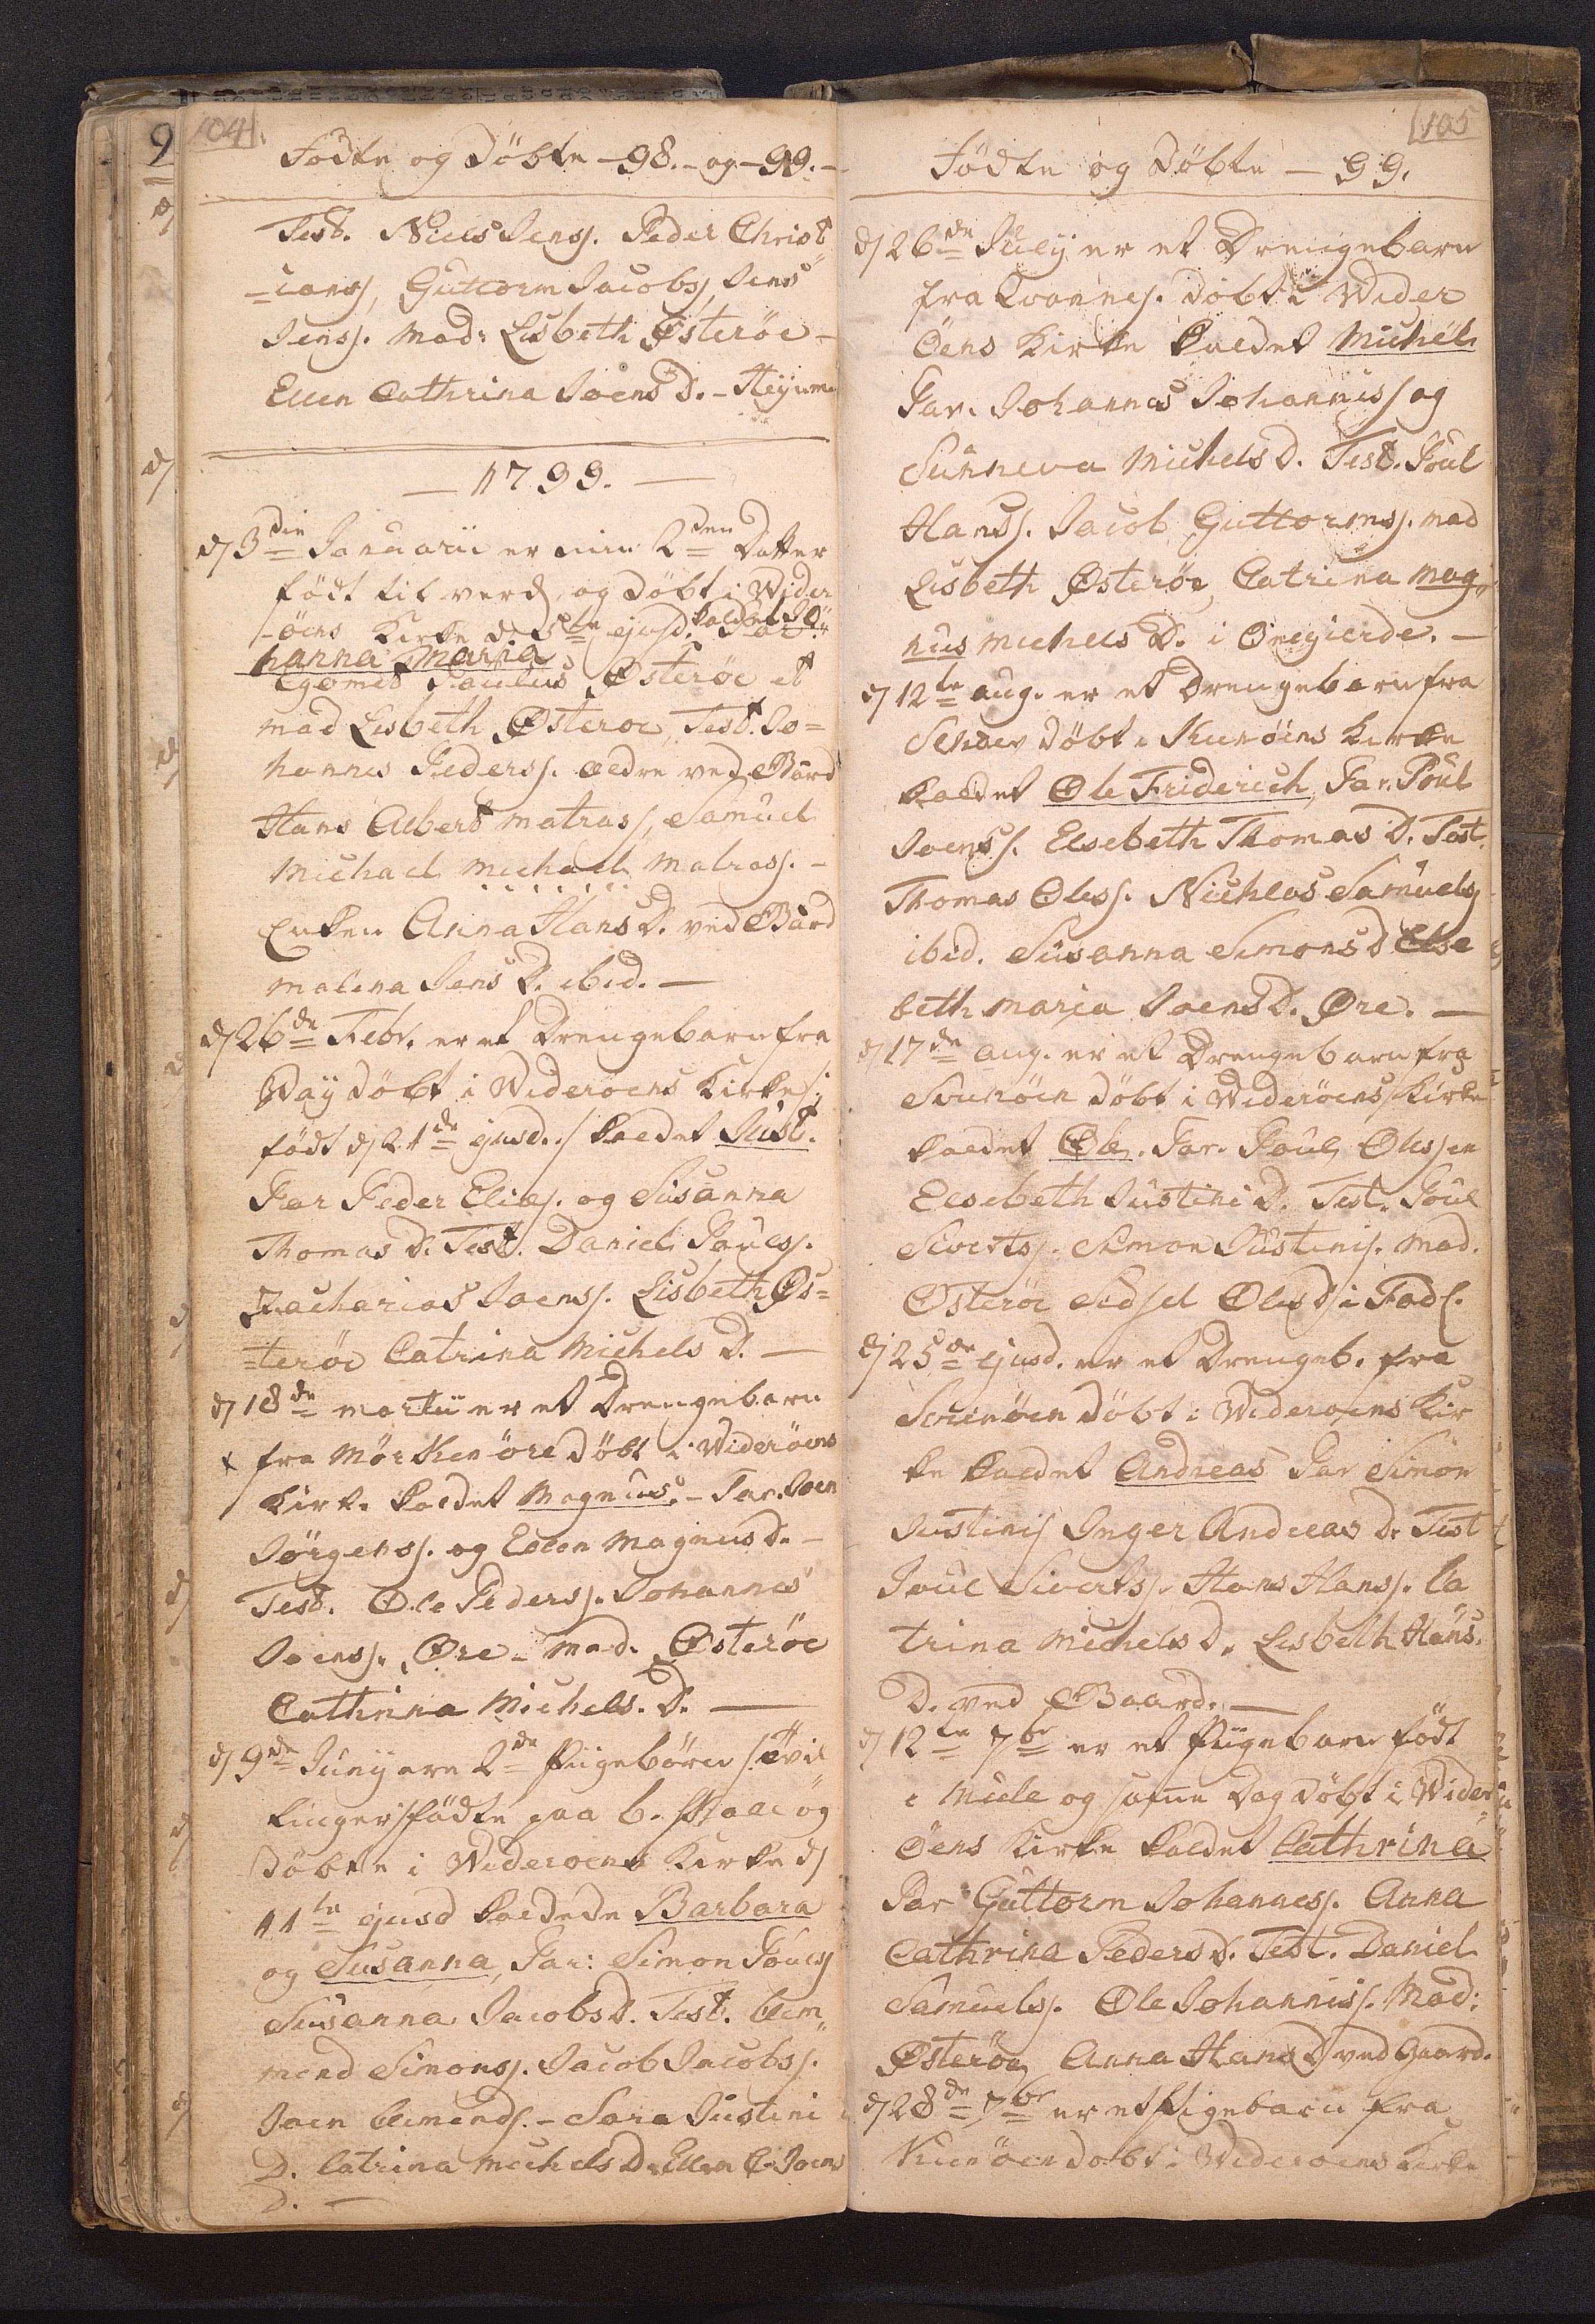 104.
Fødte og Döbte - 98. - og - 99. -
Test. Niels Jens/. Peder Christ
-ians/, Guttorm Jacobs/, Jens
Jens/. Mad: Lisbeth Østeröe -
Ellen Cathrina Joens D. -
- 1799. -
d/ 3die Januarii er min 2den Datter
födt til verd/ og döbt i Wider
-öens Kirke d. 5te ejusd. kaldet Jo
hanna Maria
Egomet Paulus Østeröe et
Mad Lisbeth Østeröe, Test. Jo=
hannes Peders/. ældre ved Baard
Hans Albert Matras/, Samuel
Michael Michael Matras/. -
Enken Anna Hans D. ved Baard
Malena Jens D. ibid. -
d/ 26de Febr. er et Drengebarn fra
Waÿ döbt i Wideröens Kirke /:
födt d/ 24de ejusd. / kaldet Just.
Far Peder Elias/. og Susanna
Thomas D. Test. Daniel Pouls/.
Zacharias Joens/. Lisbeth Øs=
=teröe Catrina Michels D. -
d/ 18de Martii er et Drengebarn
x fra Mörkenöre döbt i Wideröens
Kirke kaldet Magnus. - Far. Joen
Jörgens/. og Ellen Magnus D. -
Test. Ole Peders/. Johannes
Joens/. Øre - Mad. Østeröe
Cathrina Michels. D. -
d/ 9de Junÿ ere 2de Pigebörn /: tvil
linger / födte paa b. og
döbte i Wideröens Kirke d/
11te ejusd kaldede Barbara
og Susanna, Far: Simon Pouls/
Susanna Jacobs D. Test. Clem„
mend Simons/. Jacob Jacobs/.
Joen Clemends/. - Sara Justini
D. Catrina Michels D. Ellen C. Joens
D. -
105
Födte og Döbte - 99.
d/ 26de Julÿ er et Drengebarn
fra Qvannes/. döbt i Wider
Öens Kirke kaldet Michel
Far. Johannes Johannis/ og
Sunneva Michels D. Test. Poul
Hans/. Jacob Guttorms/. Mad
Lisbeth Østeröe, Catrina Mag„
nus Michels D. i Onegierde. -
d/ 12te Aug. er et Drengebarn fra
Skaev döbt i Kunöens Kirke
kaldet Ole Friderich, Far. Poul
Joens/. Elsebeth Thomas D. Test.
Thomas Oles/. Nichlas Samuels/
ibid. Susanna Simons D Else
beth Maria Joens D. Øre. -
d/ 17de Aug. er et Drengebarn fra
Svinöen döbt i Wideröens Kirke
kaldet Ole. Far. Poul Olessen
Elsebeth Justini D. Test. Poul
Siverts/. Simon Justinis/. Mad.
Østeröe Sidsel Oles D i Fadl.
d/ 25de ejusd. er et Drengeb. fra
Svinöen döbt i Wideröens Kir
ke kaldet Andreas Far Simon
Justinis/ Inger Andreas D. Test
Poul Siverts/. Hans Hans/. Ca
trina Michels D. Lisbeth Hans.
D. ved Baard. -
d/ 12te 7br er et Pigebarn födt
i Mule og samme Dag döbt i Wider
Öens Kirke kaldet Cathrina
Far Guttorm Johannes/. Anna
Cathrina Peders D. Test. Daniel
Samuels/. Ole Johannis/. Mad:
Østeröe, Anna Hans D ved Gaard.
d/ 28de 7br er et Pigebarn fra
Kunöen döbt i Wideröens Kirke